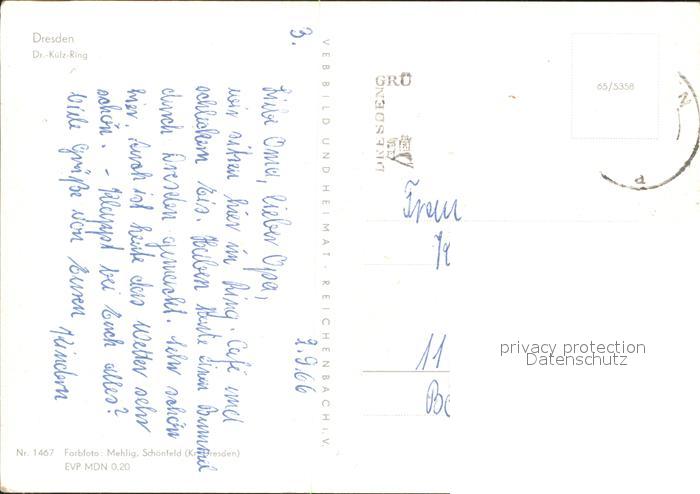 Dresden
Dr.-Külz-Ring
3.
2.9.66
Liebe Oma, lieber Opa,
wir sitzen hier im Ring-Café und
schleckern Eis. Haben heute einen Bummel
durch Dresden gemacht. Sehr schön
hier. Auch ist heute das Wetter sehr
schön. - Klappt bei Euch alles?
Viele Grüße von Euren Kindern
Nr. 1467 Farbfoto: Mehlig, Schönfeld (Kr. Dresden)
EVP MDN 0,20
VEB BILD UND HEIMAT · REICHENBACH i. V.
GRÜ
DRESDEN
65/5358
Frau
11
privacy protection
Datenschutz